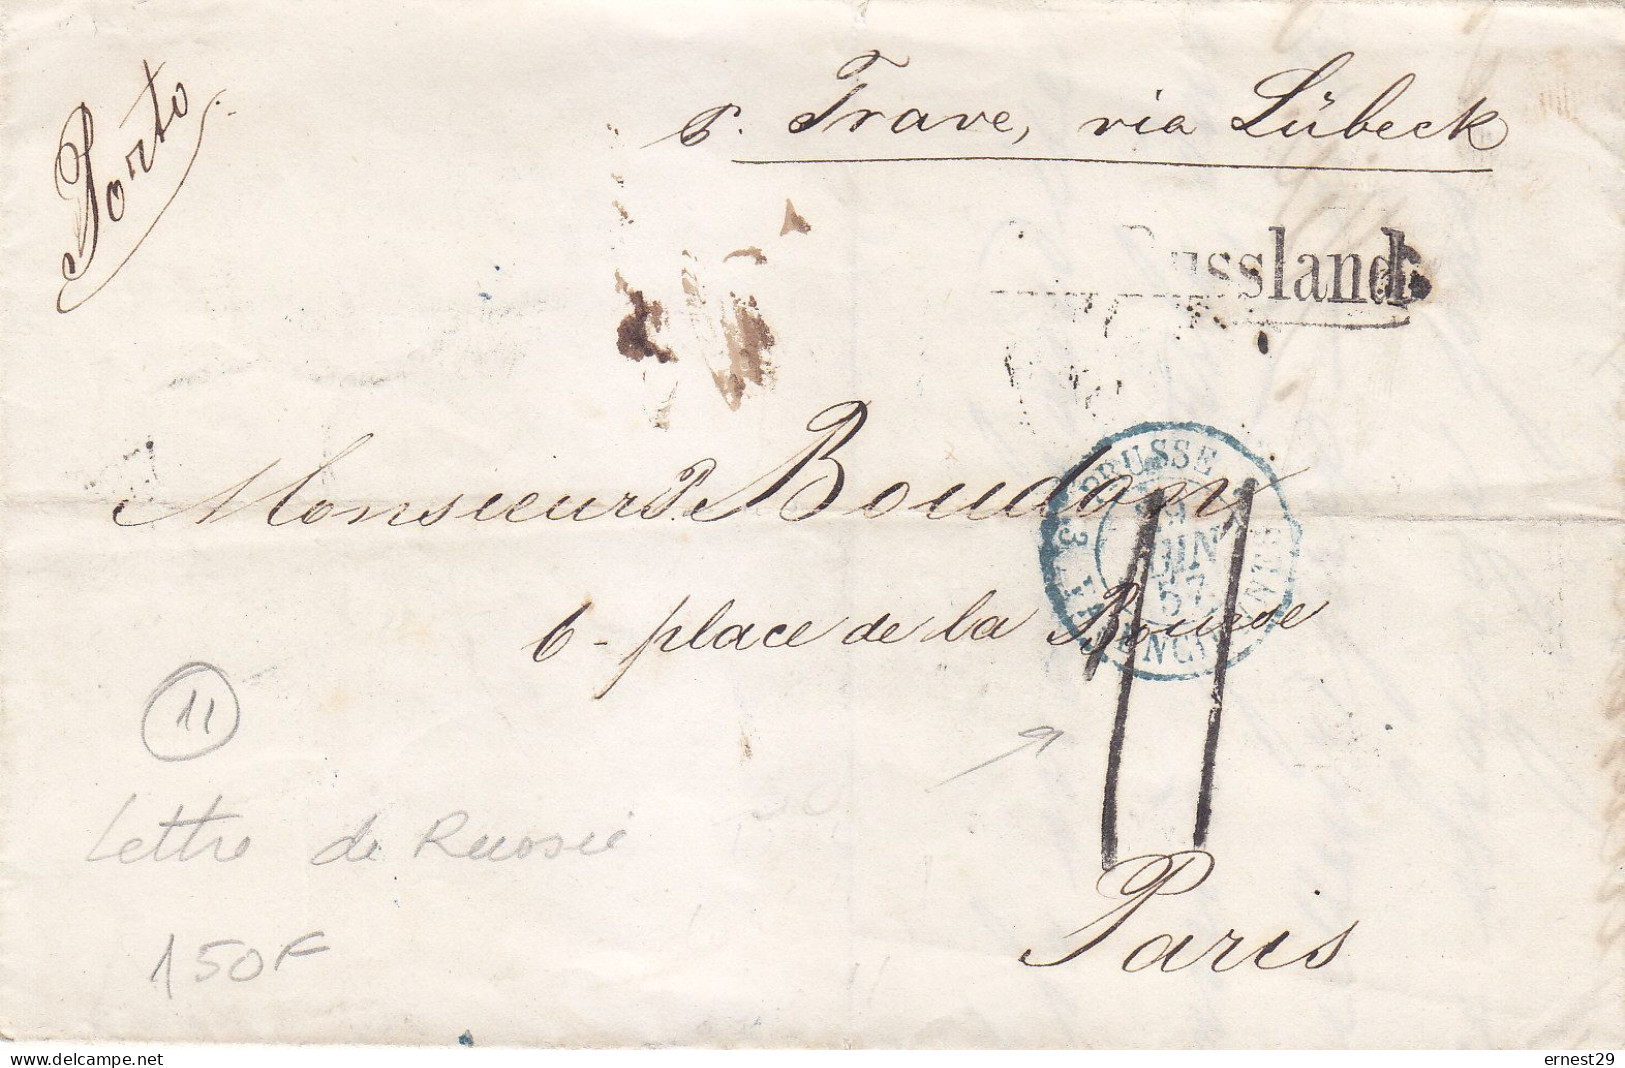 Porto
p. Trave, via Lübeck
Russland
Monsieur P. Boudon
PRUSSE 3 VALENCIENNES 3
9
JUIN
57
6 - place de la Bourse
11
11
Lettre de Russie
Paris
150F
www.delcampe.net
ernest29